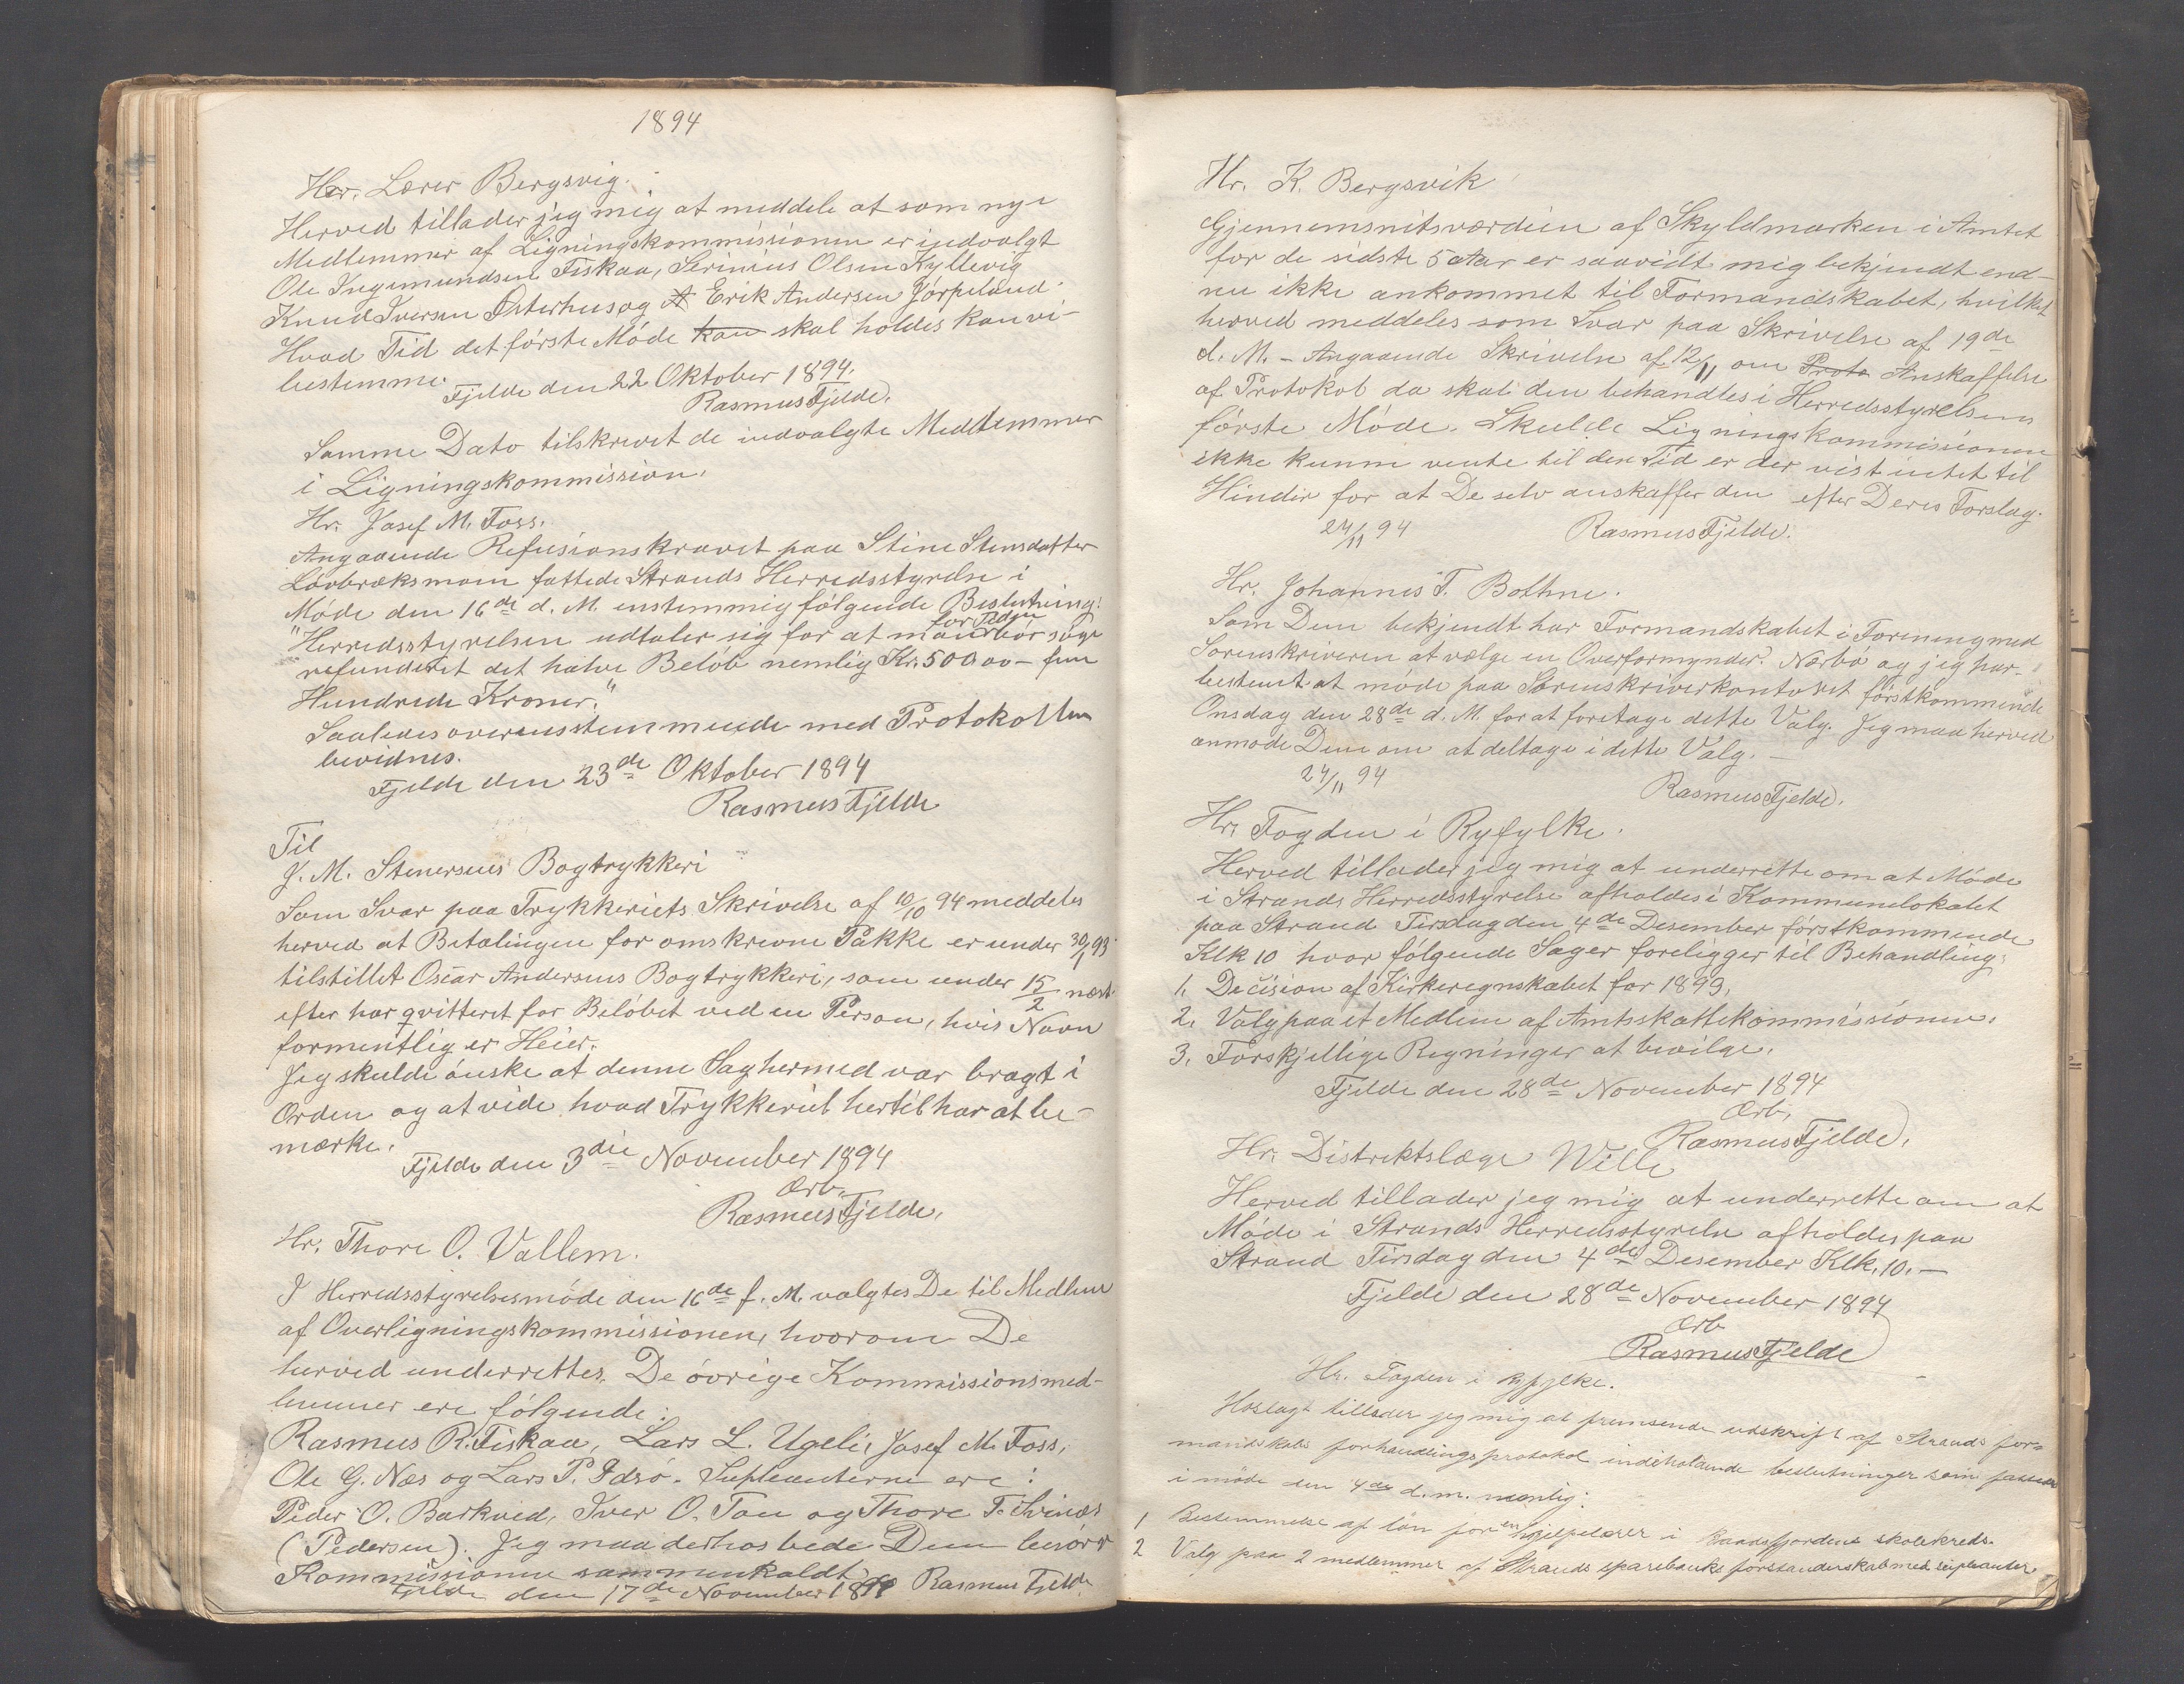 1894
Herr. Lærer Bergsvig.
Herved tillader jeg mig at meddele at som nye
Medlemmer af Ligningskommissionen er indvalgt
Ole Ingemundsen Fiskaa, Serinius Olsen Kyllevig
Knud Iversen Østerhus og A Erik Andersen Jørpeland.
Hvad Tid det første Møde kan skal holdes kan vi
bestemme.
Fjelde den 22 Oktober 1894.
Rasmus Fjelde.
Samme Dato tilskrevet de indvalgte Medlemmer
i Ligningskommission.
Hr. Josef M. Foss.
Angaaende Refusionskravet paa Stine Stensdatter
Løvbræksmoen fattede Strands Herredsstyrelse i
Møde den 16de d. M. enstemmig følgende Beslutning:
"Herredsstyrelsen udtaler sig for at man bør søge
refunderet det halve Beløb nemlig Kr. 500.00 – fem
Hundrede Kroner."
Saaledes overensstemmende med Protokollen
bevidnes.
Fjelde den 23de Oktober 1894
Rasmus Fjelde
Til
J. M. Stenersens Bogtrykkeri
Som Svar paa Trykkeriets Skrivelse af 10/10 94 meddeles
herved at Betalingen for omskrevne Pakke er under 30/1 93
tilstillet Oscar Andersens Bogtrykkeri, som under 15/2 næst
efter har qvitteret for Beløbet ved en Person, hvis Navn
formentlig er Heier.
Jeg skulde ønske at denne Sag hermed var bragt i
Orden og at vide hvad Trykkeriet hertil har at be-
mærke.
Fjelde den 3die November 1894
Ærb.
Rasmus Fjelde.
Hr. Thore O. Vallem.
I Herredsstyrelsesmøde den 16de f. M. valgtes De til Medlem
af Overligningskommissionen, hvorom De
herved underrettes. De øvrige Kommissionsmed-
lemmer ere følgende:
Rasmus R. Fiskaa, Lars L. Ugeli, Josef M. Foss,
Ole G. Næs og Lars P. Idsø. Supleanterne ere:
Peder O. Barkved, Iver O. Tau og Thore T. Svinæs
(Pedersen). Jeg maa derhos bede Dem besørge
Kommissionen sammenkaldt.
Fjelde den 17de November 1894 Rasmus Fjelde
Hr. K. Bergsvik
Gjennemsnitsværdien af Skyldmarken i Amtet
for de sidste 5 aar er saavidt mig bekjendt end-
nu ikke ankommet til Formandskabet, hvilket
herved meddeles som Svar paa Skrivelse af 19de
d. M. – Angaaende Skrivelse af 12/11 om Proto Anskaffelse
af Protokol da skal den behandles i Herredsstyrelsens
første Møde. Skulde Ligningskommissionen
ikke kunne vente til den Tid er der vist intet til
Hinder for at De selv anskaffer den efter Deres Forslag.
24/11 94
Rasmus Fjelde.
Hr. Johannes T. Bothne.
Som Dem bekjendt har Formandskabet i Forening med
Sorenskriveren at vælge en Overformynder. Nærbø og jeg har
bestemt at møde paa Sorenskriverkontoret førstkommende
Onsdag den 28de d. M. for at foretage dette Valg. Jeg maa herved
anmode Dem om at deltage i dette Valg. –
24/11 94
Rasmus Fjelde.
Hr. Fogden i Ryfylke.
Herved tillader jeg mig at underrette om at Møde
i Strands Herredsstyrelse afholdes i Kommunelokalet
paa Strand Tirsdag den 4de Desember førstkommende
Klk 10 hvor følgende Sager foreligger til Behandling:
1. Decision af Kirkeregnskabet for 1893.
2. Valg paa et Medlem af Amtsskattekommissionen.
3. Forskjellige Regninger at bevilge.
Fjelde den 28de November 1894
Ærb.
Rasmus Fjelde.
Hr. Distriktslæge Wille
Herved tillader jeg mig at underrette om at
Møde i Strands Herredsstyrelse afholdes paa
Strand Tirsdag den 4de Desember Klk. 10. –
Fjelde den 28de November 1894
Ærb
Rasmus Fjelde
Hr. Fogden i Ryfylke.
Hoslagt tillader jeg mig at fremsende udskrift af Strands for-
mandskabs forhandlingsprotokol indeholdende beslutninger som fattedes
i møde den 4de d.m. nemlig:
1 Bestemmelse af løn for en hjelpelærer i skolekreds.
2 Valg paa 2 medlemmer af Strands sparebanks forstanderskab med supleanter